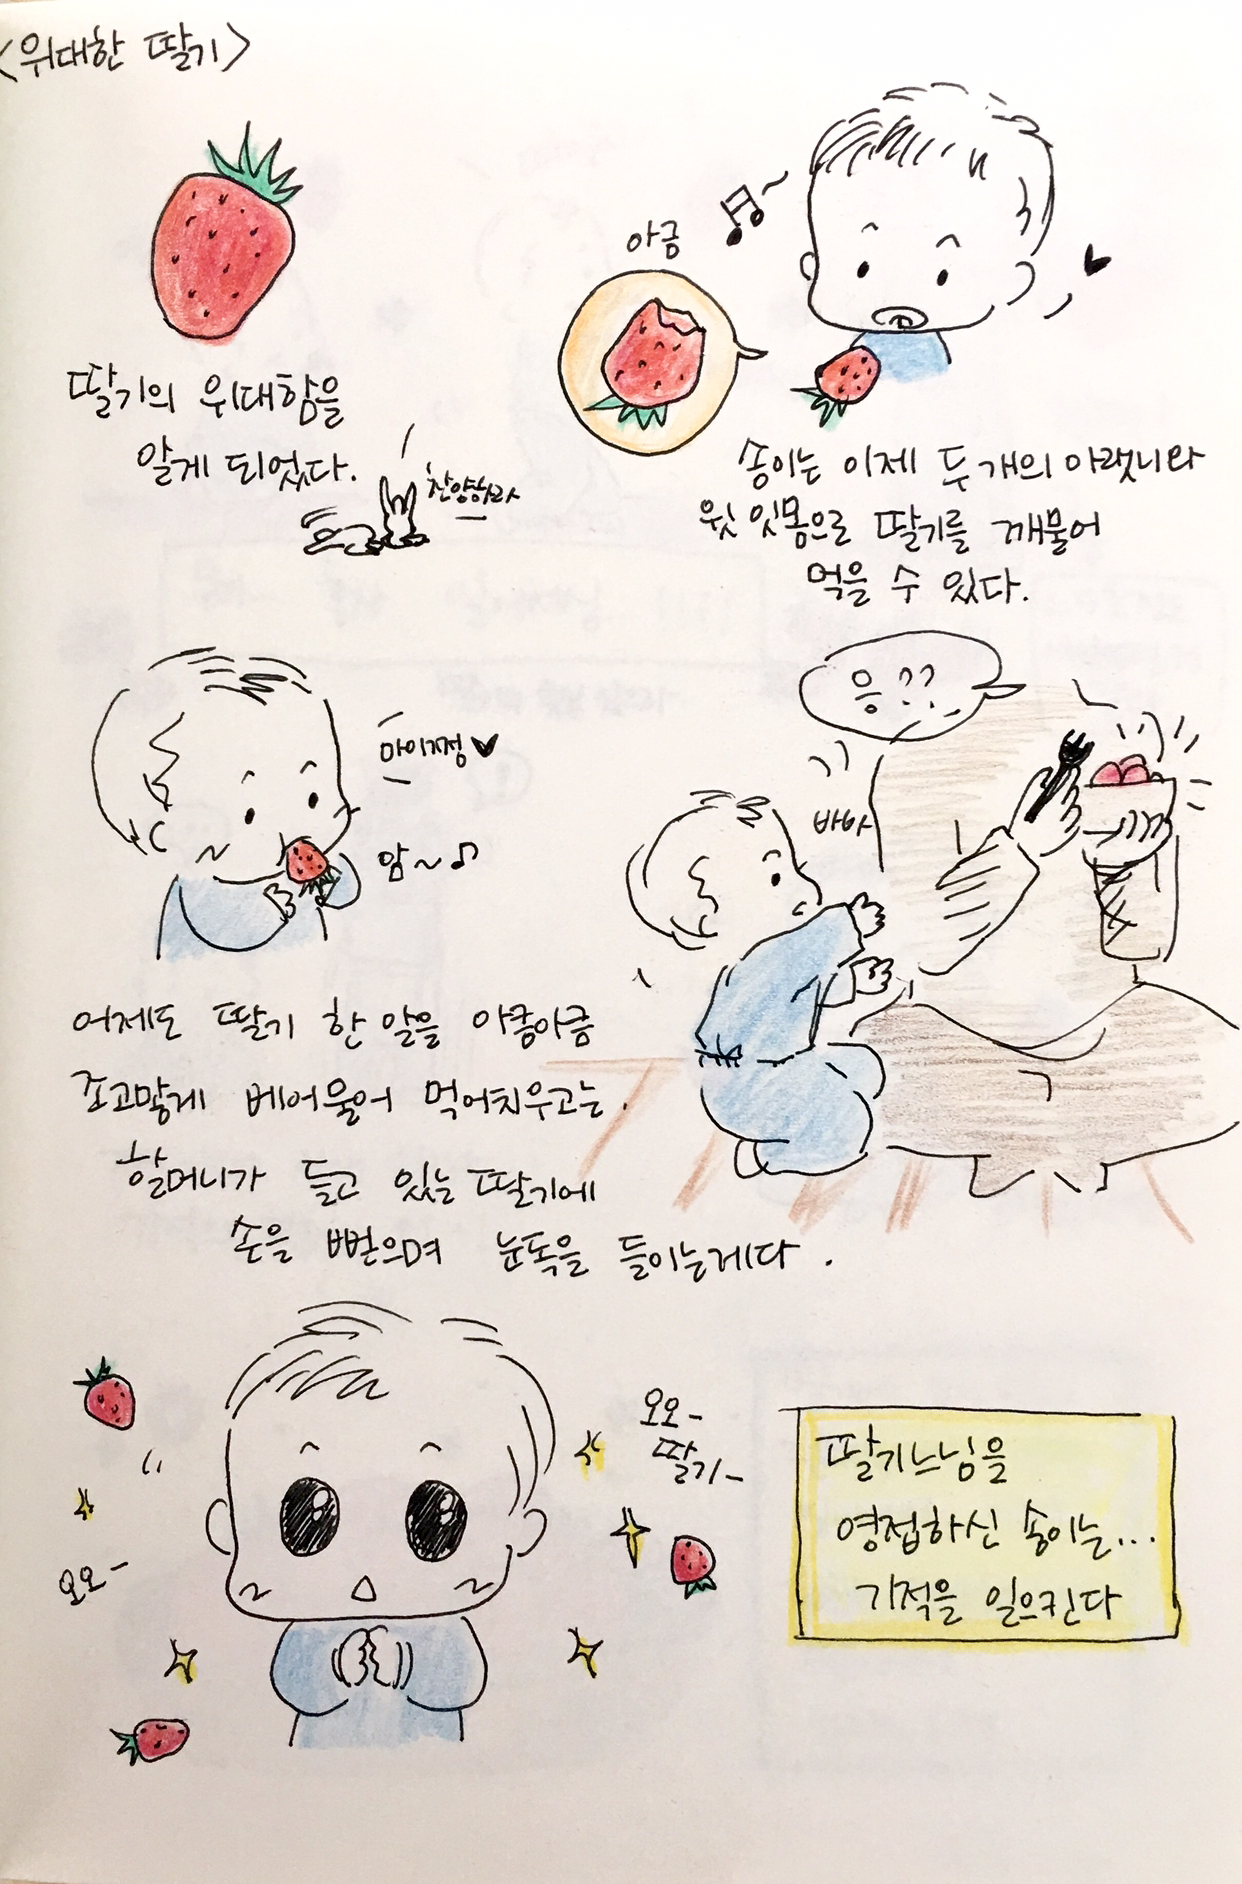 <위대한 딸기>
딸기의 위대함을
알게 되었다.
찬양하라
아금
송이는 이제 두 개의 아랫니와
윗 잇몸으로 딸기를 깨물어
먹을 수 있다.
마이쪙♥
암~♪
응??
바바
어제도 딸기 한 알을 아금아금
조고맣게 베어물어 먹어치우고는.
할머니가 들고 있는 딸기에
손을 뻗으며 눈독을 들이는게다.
오오-
딸기-
오오-
딸기느님을
영접하신 송이는...
기적을 일으킨다